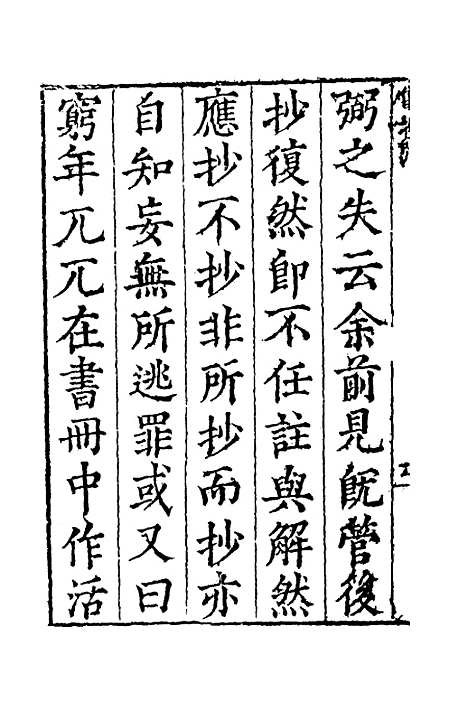 弼之失云余前見既管後
抄復然即不任註與解然
應抄不抄非所抄而抄亦
自知妄無所逃罪或又曰
窮年兀兀在書冊中作活